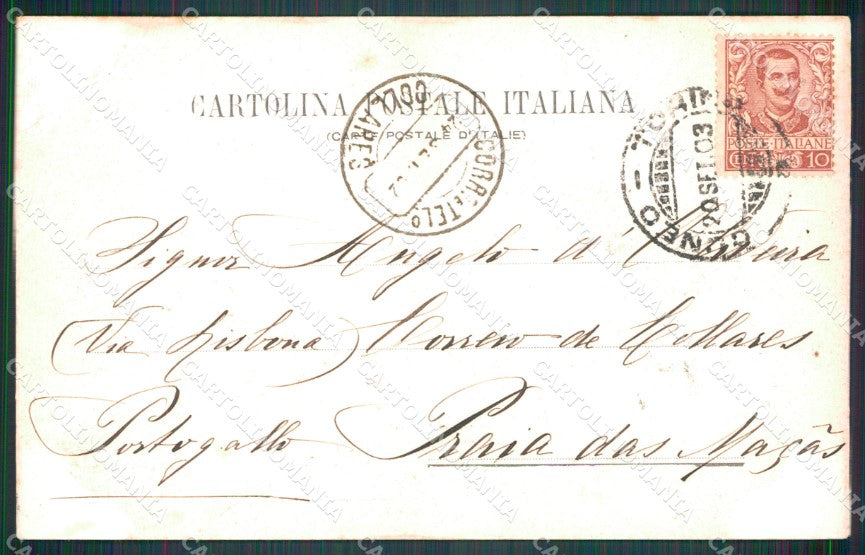 CARTOLINA POSTALE ITALIANA
(CARTE POSTALE D'ITALIE)
POSTE ITALIANE
10
TORINO - CUNEO
20 SET. 03
CORR. E TELº
COLLARES
Signor Angelo d'
(Via Lisbona) Correio de Collares
Portogallo Praia das Maçãs
CARTOLINOMANIA